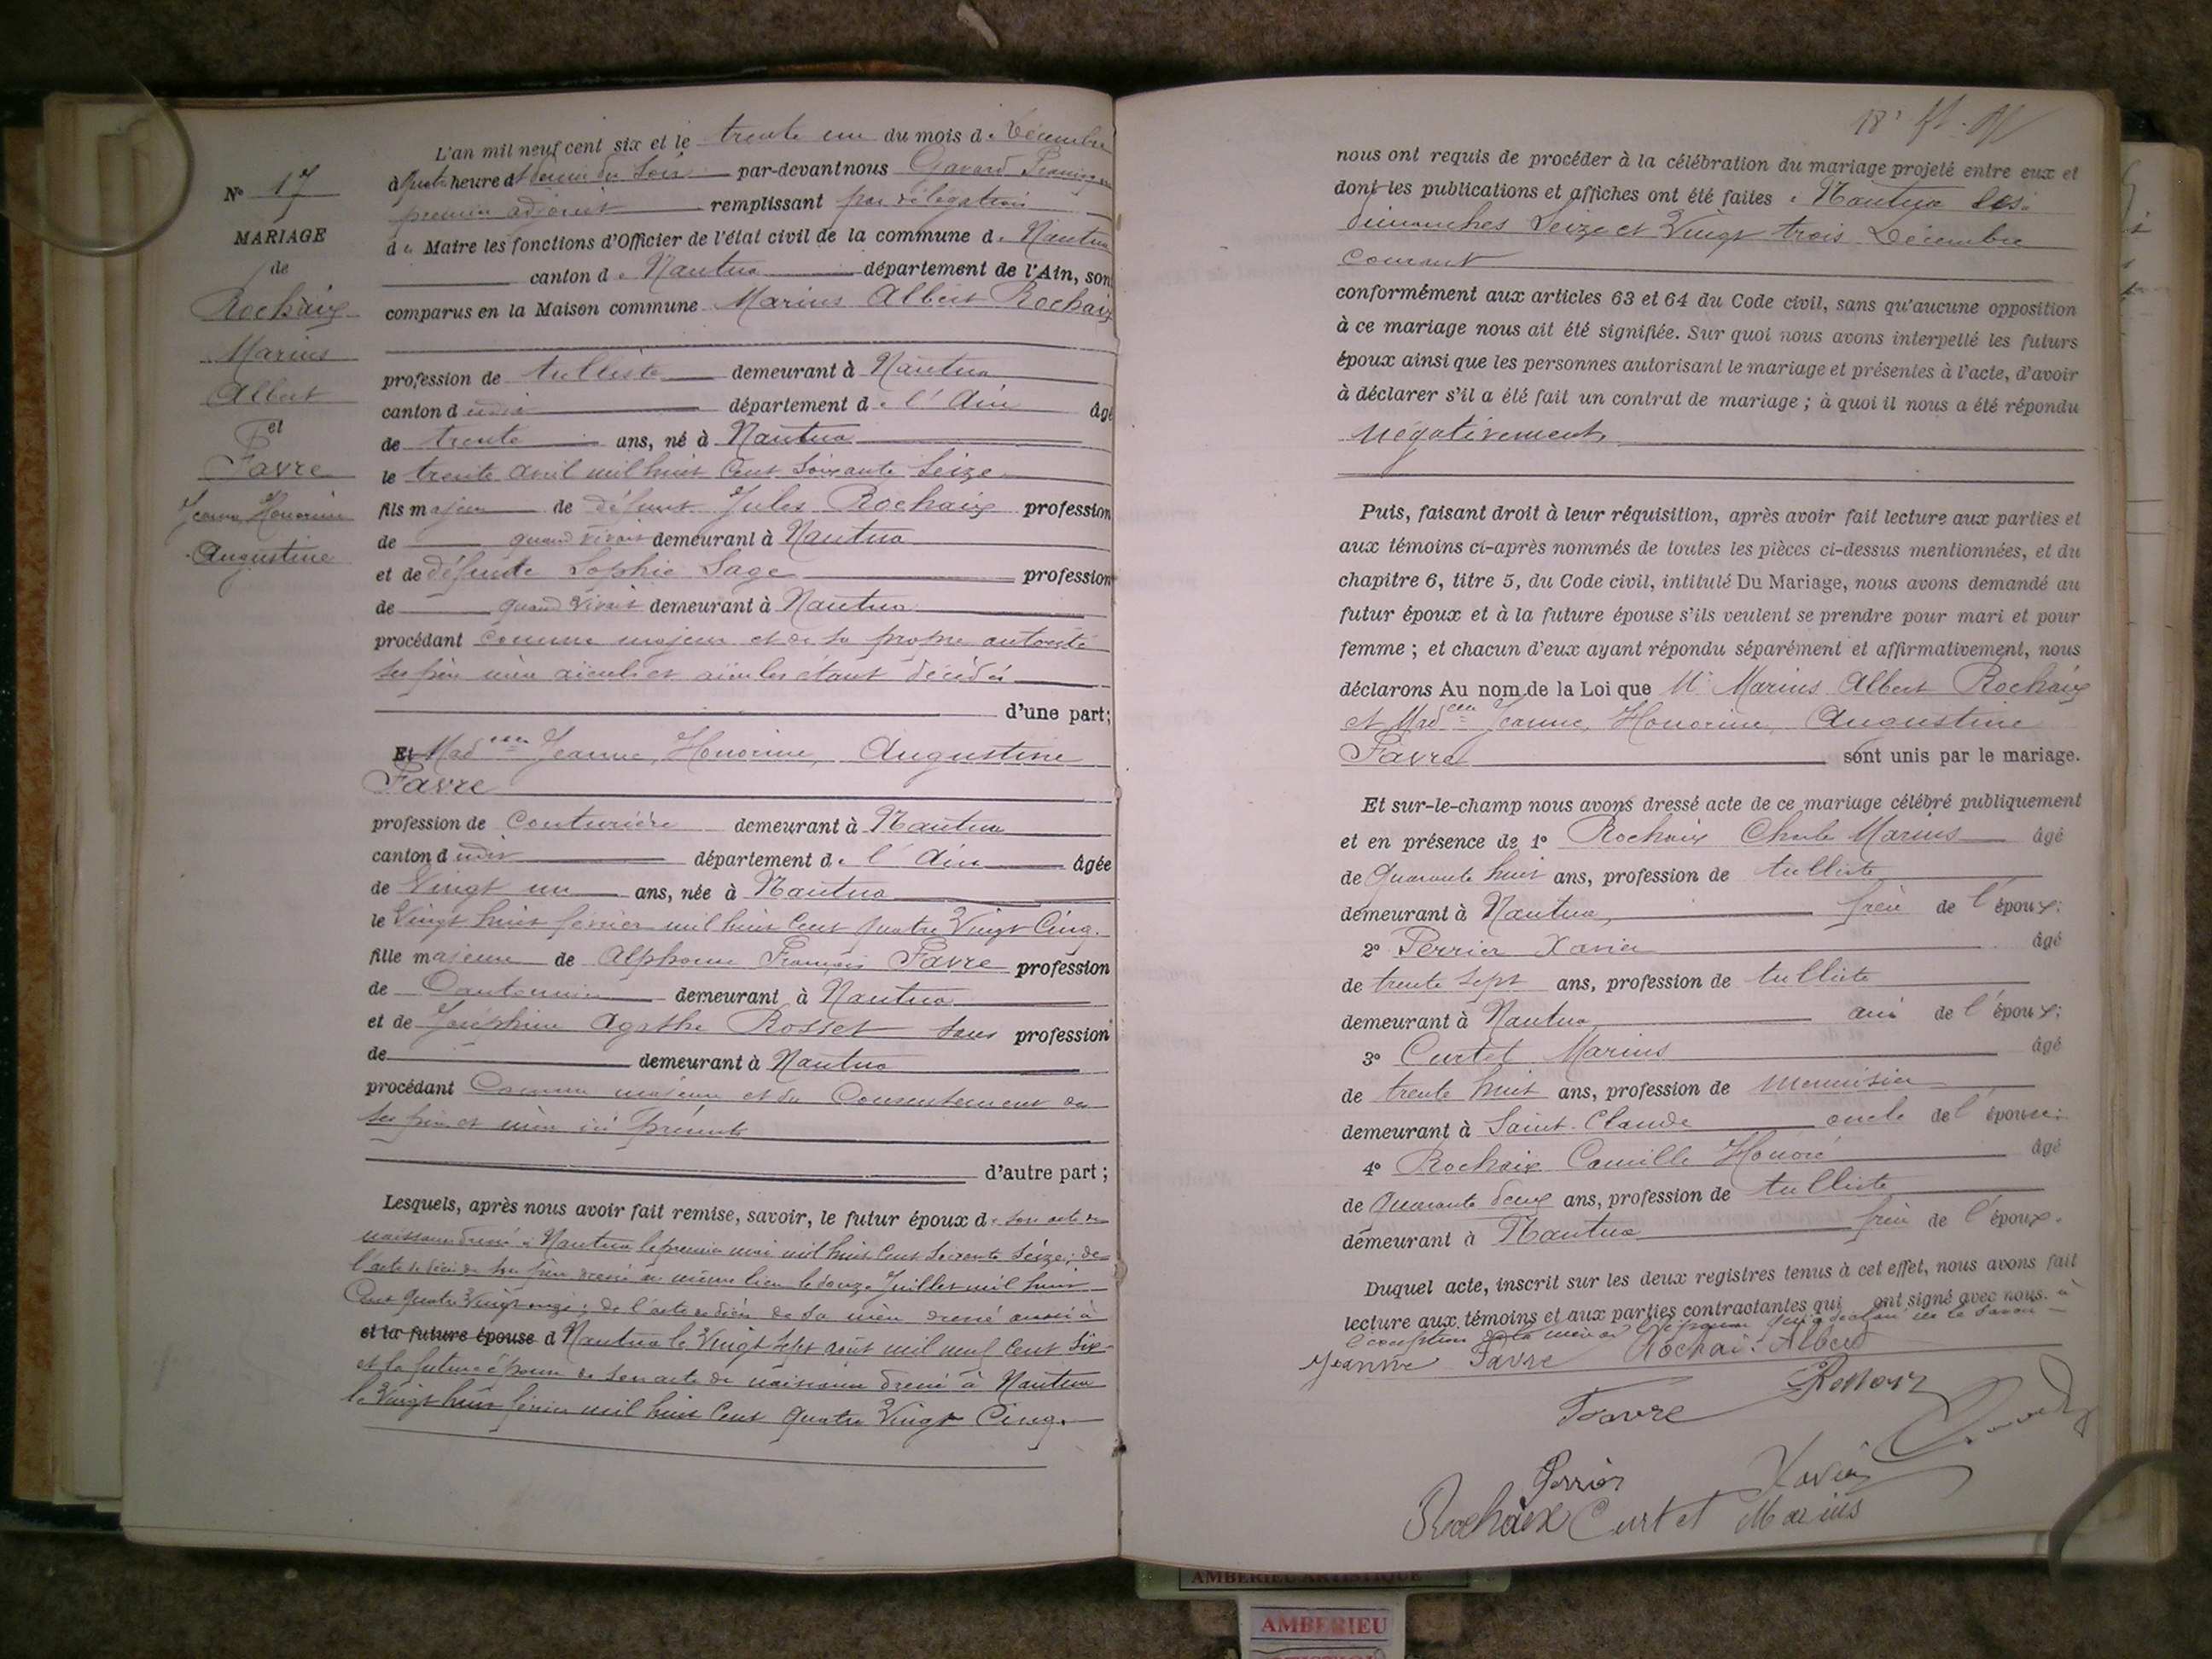 N° 17
MARIAGE
de
Rochaix
Marius
Albert
et
Favre
Jeanne Honorine
Augustine
L'an mil neuf cent six et le trente un du mois de Décembre
à quatre heure et demie du Soir par-devant nous Gavard François
premier adjoint remplissant par délégation
du Maire les fonctions d'Officier de l'état civil de la commune de Nantua
canton de Nantua département de l'Ain, son
comparus en la Maison commune Marius Albert Rochaix
profession de tulliste demeurant à Nantua
canton dudit département de l'Ain âgé
de trente ans, né à Nantua
le trente avril mil huit Cent Soixante Seize
fils majeur de défunt Jules Rochaix profession
de quand vivait demeurant à Nantua
et de défunte Sophie Sage profession
de quand vivait demeurant à Nantua
procédant comme majeur et de sa propre autorité
ses père mère aïeuls et aïeules étant décédés
d'une part;
Et Mad elle Jeanne, Honorine, Augustine
Favre
profession de Couturière demeurant à Nantua
canton dudit département de l'Ain âgée
de Vingt un ans, née à Nantua
le Vingt huit février mil huit Cent quatre Vingt Cinq.
fille majeure de Alphonse François Favre profession
de Cantonnier demeurant à Nantua
et de Joséphine Agathe Rosset sans profession
de demeurant à Nantua
procédant Comme majeure et du Consentement de
ses père et mère ici Présents
d'autre part;
Lesquels, après nous avoir fait remise, savoir, le futur époux de son acte de
naissance dressé à Nantua le premier mai mil huit Cent Soixante Seize; de
l'acte de décès de son père dressé au même lieu le douze Juillet mil huit
Cent quatre Vingt onze; de l'acte de décès de sa mère dressé aussi à
et la future épouse d Nantua le Vingt sept août mil neuf Cent Six
et la future épouse de son acte de naissance dressé à Nantua
le Vingt huit février mil huit Cent quatre Vingt Cinq.
nous ont requis de procéder à la célébration du mariage projeté entre eux et
dont les publications et affiches ont été faites à Nantua les
dimanches Seize et Vingt trois Décembre
courant
conformément aux articles 63 et 64 du Code civil, sans qu'aucune opposition
à ce mariage nous ait été signifiée. Sur quoi nous avons interpellé les futurs
époux ainsi que les personnes autorisant le mariage et présentes à l'acte, d'avoir
à déclarer s'il a été fait un contrat de mariage; à quoi il nous a été répondu
négativement
Puis, faisant droit à leur réquisition, après avoir fait lecture aux parties et
aux témoins ci-après nommés de toutes les pièces ci-dessus mentionnées, et du
chapitre 6, titre 5, du Code civil, intitulé Du Mariage, nous avons demandé au
futur époux et à la future épouse s'ils veulent se prendre pour mari et pour
femme; et chacun d'eux ayant répondu séparément et affirmativement, nous
déclarons Au nom de la Loi que Mr Marius Albert Rochaix
et Mad elle Jeanne, Honorine, Augustine
Favre sont unis par le mariage.
Et sur-le-champ nous avons dressé acte de ce mariage célébré publiquement
et en présence de 1° Rochaix Charles Marius âgé
de Quarante huit ans, profession de tulliste
demeurant à Nantua, frère de l'époux;
2° Perrier Xavier âgé
de trente sept ans, profession de tulliste
demeurant à Nantua ami de l'époux;
3° Curtet Marius âgé
de trente huit ans, profession de menuisier
demeurant à Saint-Claude oncle de l'épouse;
4° Rochaix Camille Honoré âgé
de Quarante deux ans, profession de tulliste
demeurant à Nantua frère de l'époux.
Duquel acte, inscrit sur les deux registres tenus à cet effet, nous avons fait
lecture aux témoins et aux parties contractantes qui ont signé avec nous à
l'exception de la mère de l'épouse qui a déclaré ne le savoir
Jeanne Favre Rochaix Albert
Favre
Perrier Xavier
Rochaix Curtet Marius
AMBERIEU ARTISTIQUE
AMBERIEU